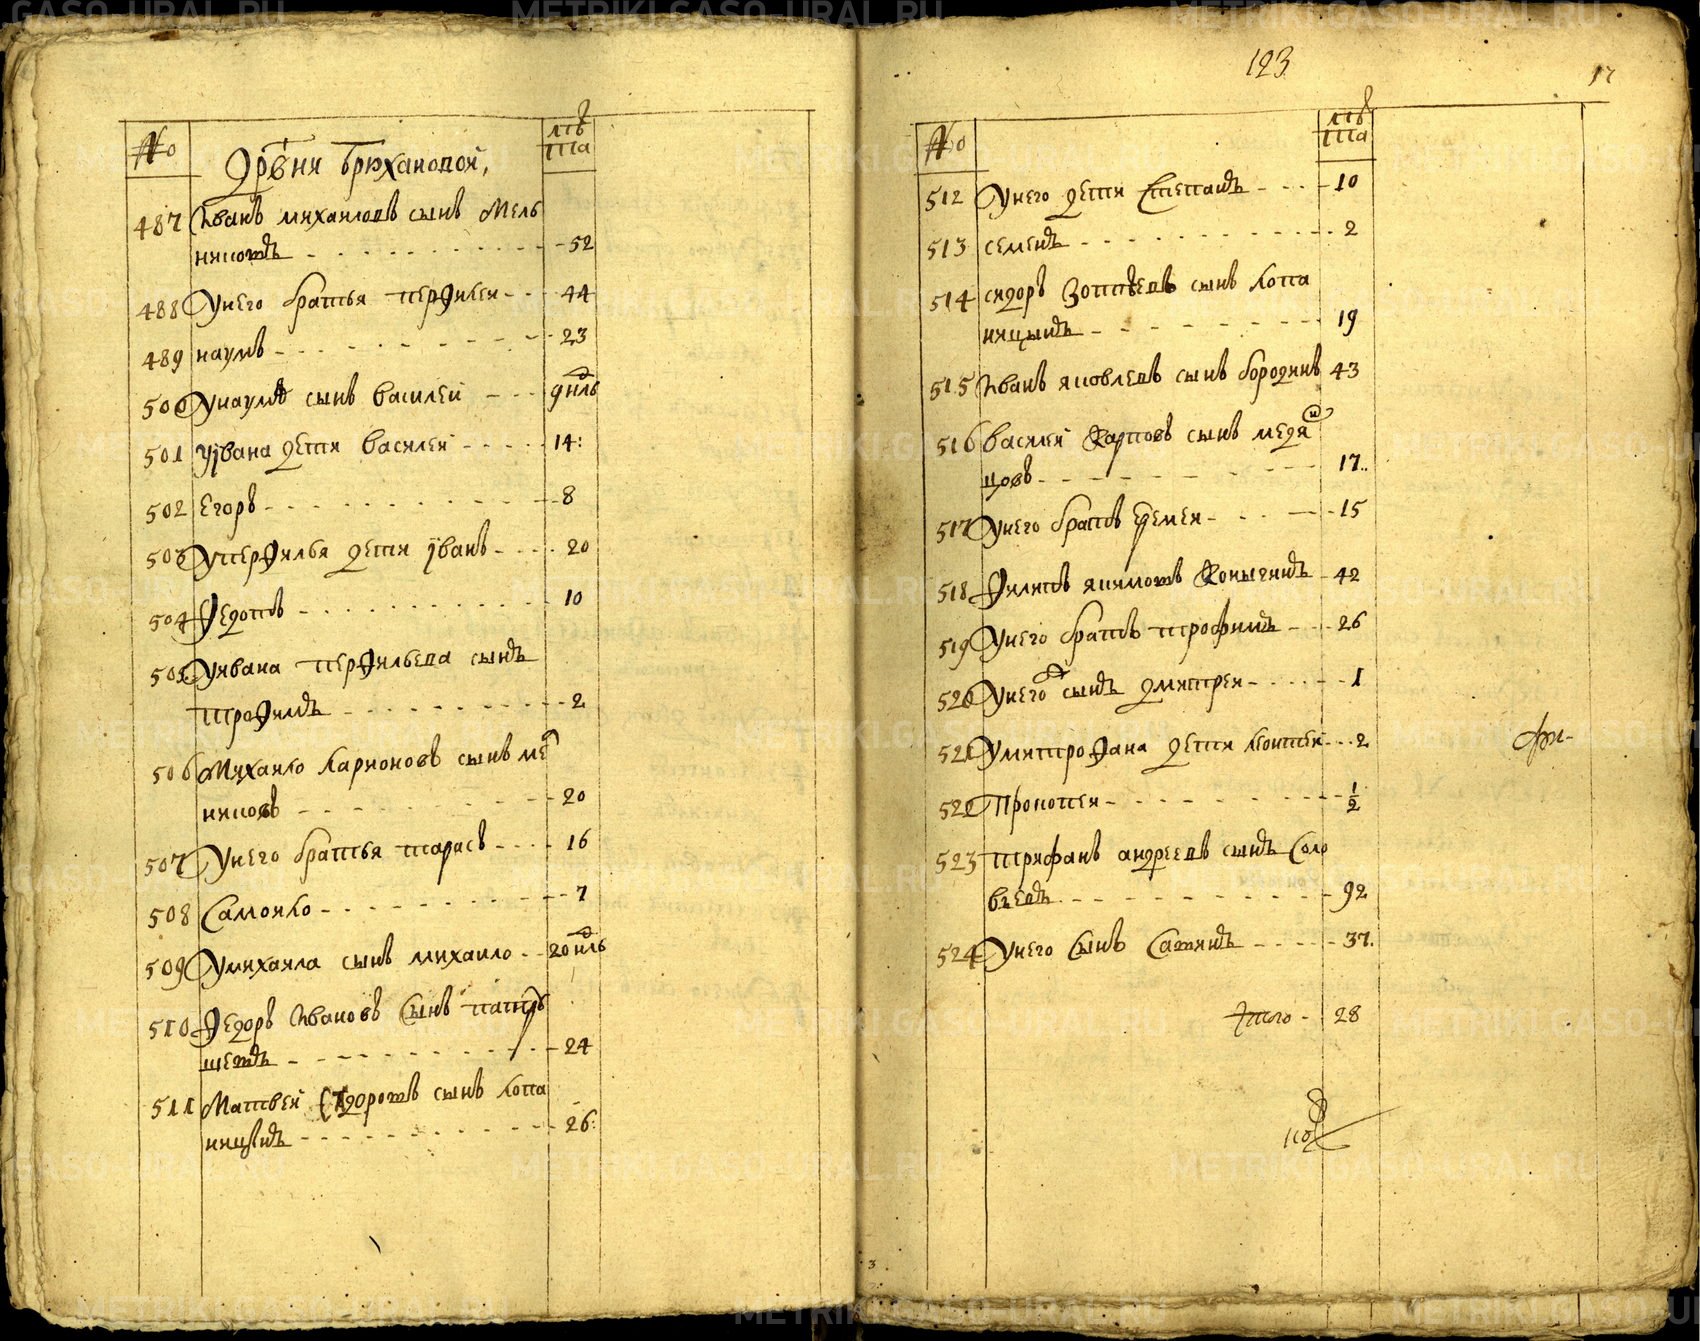 №
Дрвни Брюхановой,
лѣта
487 Иванъ михаиловъ сынъ Мель
никовъ 52
488 Унего братья перфилеи 44
489 наумъ 23
500 Унаума сынъ василеи 9 нль
501 Уiвана дети василеи 14:
502 Егоръ 8
503 Уперфилья дети iванъ 20
504 Федотъ 10
505 Уивана перфильева сынъ
трофимъ 2
506 Михаило ларионовъ сынъ ме
никовъ 20
507 Унего братья тарасъ 16
508 Самоило 7
509 Умихаила сынъ михаило 20 нль
510 Федоръ Ивановъ Сынъ
24
511 Матвеи сынъ копа
ницынъ 26:
123
17
№
лѣта
512 Унего дети Степанъ 10
513 семенъ 2
514 сидоръ Зотѣевъ сынъ копа
ницынъ 19
515 Иванъ яковлевъ сынъ бородинъ 43
516 василеи Карповъ сынъ медян
цовъ 17..
517 Унего братъ Еремеи 15
518 Филипъ якимовъ Конычинъ 42
519 Унего братъ трофимъ 26
520 Унего сынъ дмитреи 1
521 Умитрофана дети леонтеи 2
522 Прокопеи ½
523 трифанъ андреевъ сынъ Соло
вьевъ 92
524 Унего Сынъ 37.
Итого 28
METRIKI.GASO-URAL.RU